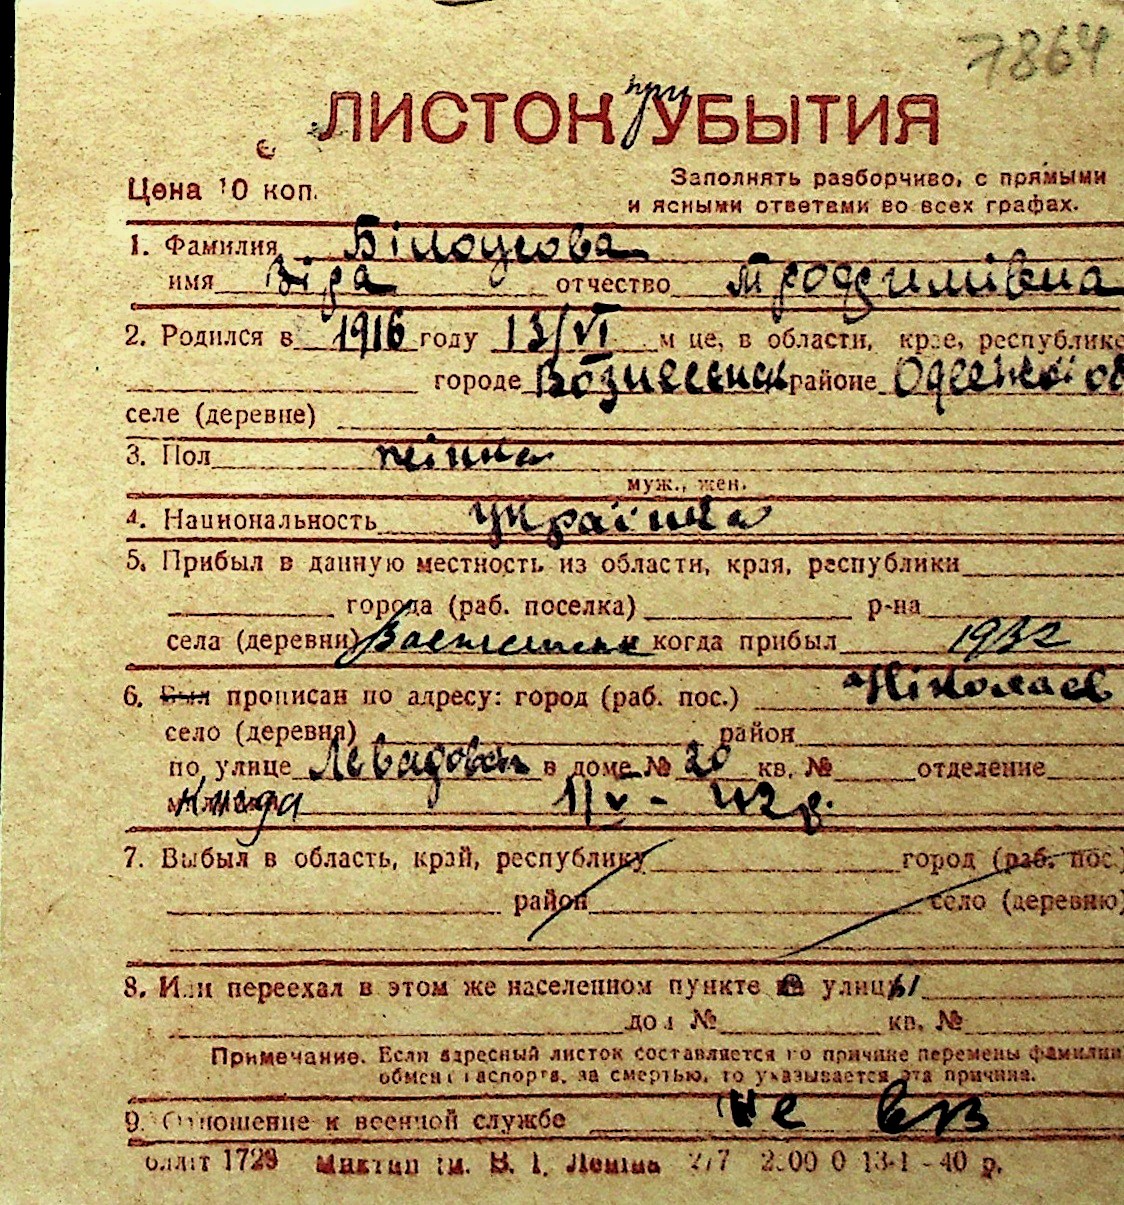 7864
ЛИСТОК при УБЫТИЯ
Цена 10 коп.
Заполнять разборчиво, с прямыми
и ясными ответами во всех графах.
1. Фамилия Білоусова
имя Віра отчество
2. Родился в 1916 году 13/VI м це, в области, крае, республике
городе Вознесенськ районе Одеської об
селе (деревне)
3. Пол жінка
муж., жен.
4. Национальность українка
5. Прибыл в данную местность из области, края, республики
города (раб. поселка) р-на
села (деревни) когда прибыл 1932
6. Был прописан по адресу: город (раб. пос.) Ніколаев
село (деревня) район
по улице в доме № 20 кв. № отделение
милиции 1/V - 42 р.
7. Выбыл в область, край, республику город (раб. пос.)
район село (деревню)
8. Или переехал в этом же населенном пункте улицы
дом № кв. №
Примечание. Если адресный листок составляется по причине перемены фамилии
обмена паспорта, за смертью, то указывается эта причина.
9. Отношение к военной службе не
1729 им. В. І. Леніна 277 13-1-40 р.